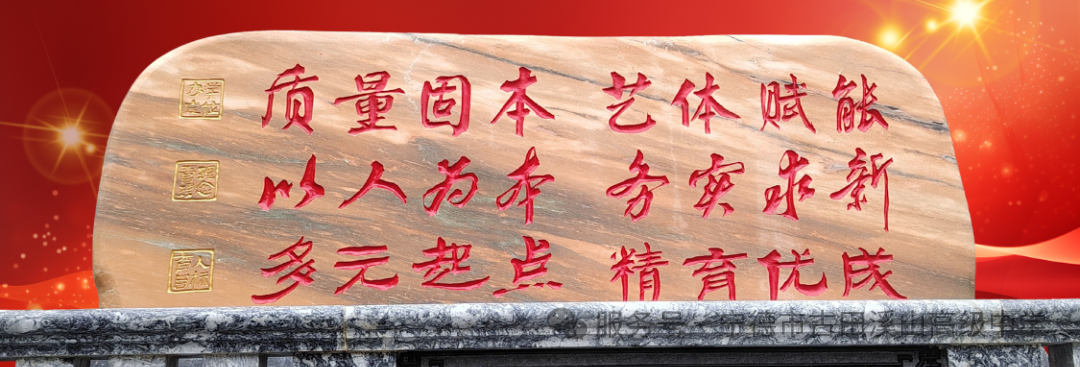 质量固本 艺体赋能
以人为本 务实求新
多元起点 精育优成
服务号 · 宁德市古田溪山高级中学